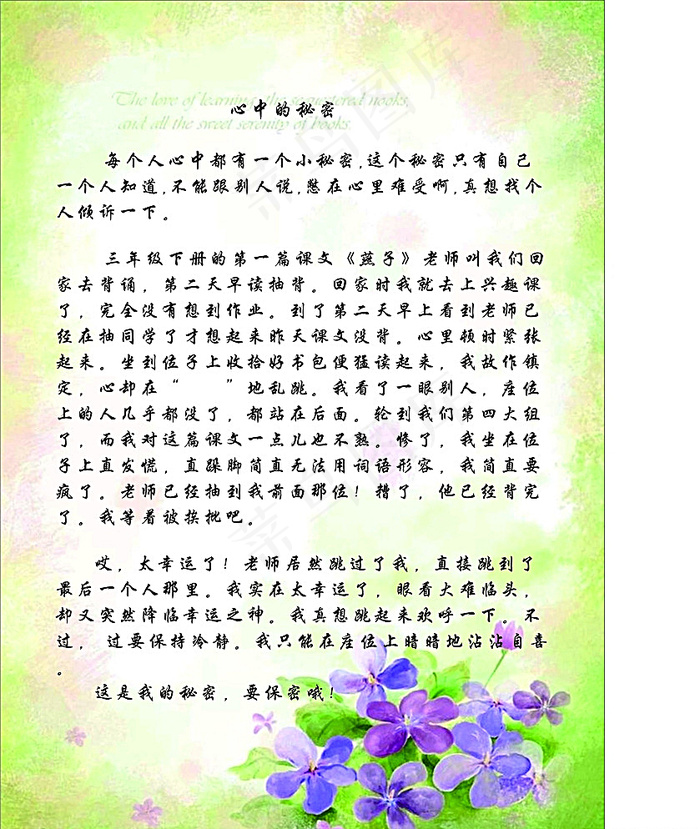 The love of learning, the sequestered nooks,
心中的秘密
and all the sweet serenity of books
每个人心中都有一个小秘密,这个秘密只有自己
一个人知道,不能跟别人说,憋在心里难受啊,真想找个
人倾诉一下。
三年级下册的第一篇课文《燕子》老师叫我们回
家去背诵，第二天早读抽背。回家时我就去上兴趣课
了，完全没有想到作业。到了第二天早上看到老师已
经在抽同学了才想起来昨天课文没背。心里顿时紧张
起来。坐到位子上收拾好书包便猛读起来，我故作镇
定，心却在“　　”地乱跳。我看了一眼别人，座位
上的人几乎都没了，都站在后面。轮到我们第四大组
了，而我对这篇课文一点儿也不熟。惨了，我坐在位
子上直发慌，直跺脚简直无法用词语形容，我简直要
疯了。老师已经抽到我前面那位！糟了，他已经背完
了。我等着被挨批吧。
哎，太幸运了！老师居然跳过了我，直接跳到了
最后一个人那里。我实在太幸运了，眼看大难临头，
却又突然降临幸运之神。我真想跳起来欢呼一下。不
过，过要保持冷静。我只能在座位上暗暗地沾沾自喜
。
这是我的秘密，要保密哦！